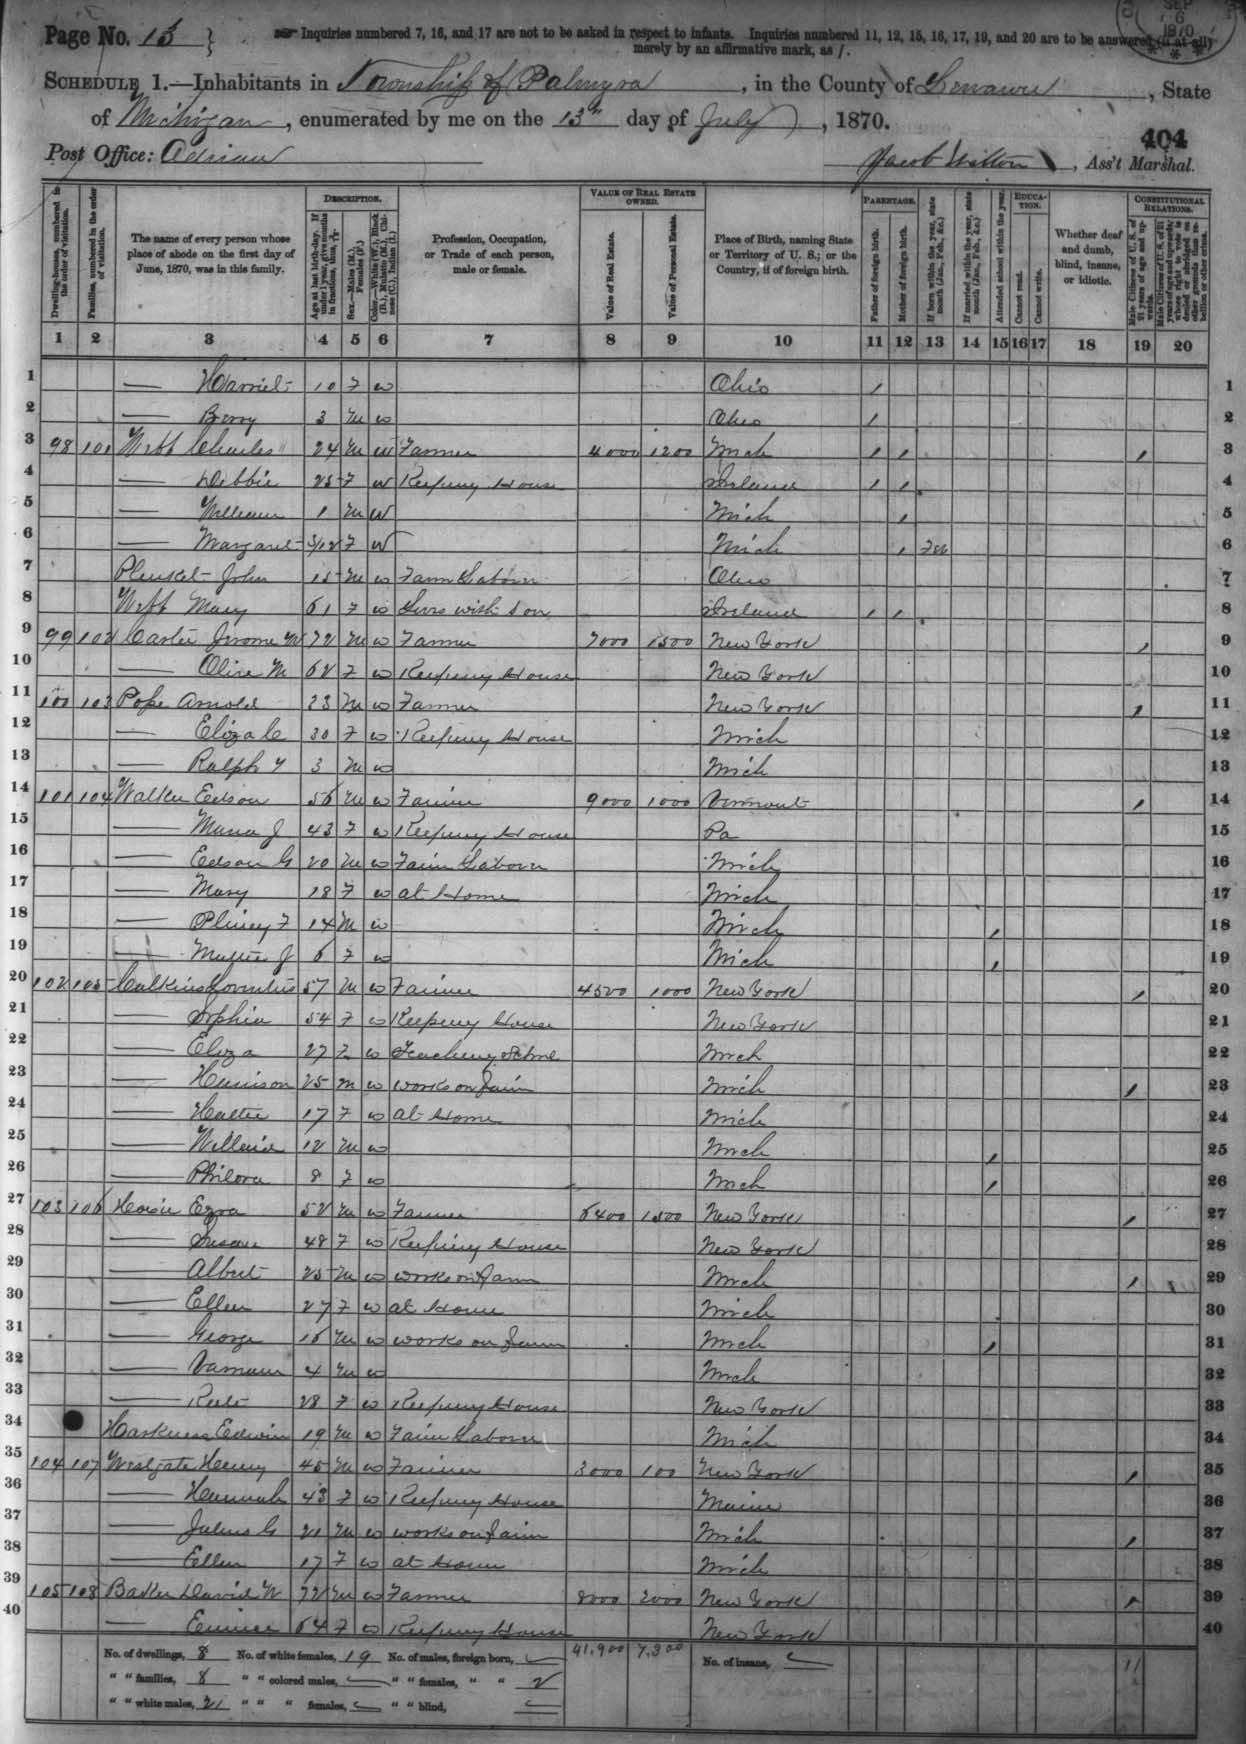 Page No. 13
Inquiries numbered 7, 16, and 17 are not to be asked in respect to infants. Inquiries numbered 11, 12, 15, 16, 17, 19, and 20 are to be answered (if at all)
merely by an affirmative mark, as /.
SEP 6 1870
SCHEDULE 1.—Inhabitants in Township of Palmyra, in the County of Lenawee, State
of Michigan, enumerated by me on the 13th day of July, 1870.
404
Post Office: Adrian
Jacob, Ass't Marshal.
Dwelling-houses, numbered in the order of visitation.
Families, numbered in the order of visitation.
The name of every person whose place of abode on the first day of June, 1870, was in this family.
DESCRIPTION.
Age at last birth-day. If under 1 year, give months in fractions, thus, 3/12
Sex.—Males (M.), Females (F.)
Color.—White (W.), Black (B.), Mulatto (M.), Chinese (C.), Indian (I.)
Profession, Occupation, or Trade of each person, male or female.
VALUE OF REAL ESTATE OWNED.
Value of Real Estate.
Value of Personal Estate.
Place of Birth, naming State or Territory of U. S.; or the Country, if of foreign birth.
PARENTAGE.
Father of foreign birth.
Mother of foreign birth.
If born within the year, state month (Jan., Feb., &c.)
If married within the year, state month (Jan., Feb., &c.)
Attended school within the year.
EDUCATION.
Cannot read.
Cannot write.
Whether deaf and dumb, blind, insane, or idiotic.
CONSTITUTIONAL RELATIONS.
Male Citizens of U. S. of 21 years of age and upwards.
Male Citizens of U. S. of 21 years of age and upwards, whose right to vote is denied or abridged on other grounds than rebellion or other crime.
1 2 3 4 5 6 7 8 9 10 11 12 13 14 15 16 17 18 19 20
1 — Harriet 10 F W Ohio / 1
2 — Berry 3 M W Ohio / 2
3 98 101 Webb Charles 24 M W Farmer 4000 1200 Mich / / / 3
4 — Debbie 25 F W Keeping House Ireland / / 4
5 — William 1 M W Mich / 5
6 — Margaret 3/12 F W Mich / Feb 6
7 John 15 M W Farm Laborer Ohio 7
8 Webb Mary 61 F W Lives with Son Ireland / / 8
9 99 102 Carter Jerome M 72 M W Farmer 7000 1500 New York / 9
10 — Olive M 62 F W Keeping House New York 10
11 100 103 Pope Arnold 33 M W Farmer New York / 11
12 — Eliza C 30 F W Keeping House Mich 12
13 — Ralph Y 3 M W Mich 13
14 101 104 Walker Edson 56 M W Farmer 9000 1000 Vermont / 14
15 — Maria J 43 F W Keeping House Pa 15
16 — Edson G 20 M W Farm Laborer Mich 16
17 — Mary 18 F W at Home Mich 17
18 — Pliney F 14 M W Mich / 18
19 — J 6 F W Mich / 19
20 102 105 Calkins 57 M W Farmer 4500 1000 New York / 20
21 — Sophia 54 F W Keeping House New York 21
22 — Eliza 27 F W Teaching School Mich 22
23 — Harrison 25 M W works on farm Mich / 23
24 — Hattie 17 F W at Home Mich 24
25 — Willard 12 M W Mich / 25
26 — Philora 8 F W Mich / 26
27 103 106 Ezra 52 M W Farmer 6400 1500 New York / 27
28 — Susan 48 F W Keeping House New York 28
29 — Albert 25 M W works on farm Mich / 29
30 — Ellen 27 F W at Home Mich 30
31 — George 16 M W works on farm Mich / 31
32 — Varnum 4 M W Mich 32
33 — 28 F W Keeping House New York 33
34 Harkness Edwin 19 M W Farm Laborer Mich 34
35 104 107 Westgate Henry 45 M W Farmer 3000 100 New York / 35
36 — Hannah 43 F W Keeping House Maine 36
37 — Julius G 21 M W works on farm Mich / 37
38 — Ellen 17 F W at Home Mich 38
39 105 108 Baker David W 72 M W Farmer 8000 2000 New York / 39
40 — Eunice 64 F W Keeping House New York 40
No. of dwellings, 8 No. of white females, 19 No. of males, foreign born, — 41,900 7,300 No. of insane, — 11
" " families, 8 " " colored males, — " " females, " " 2
" " white males, 21 " " " females, — " " blind, —